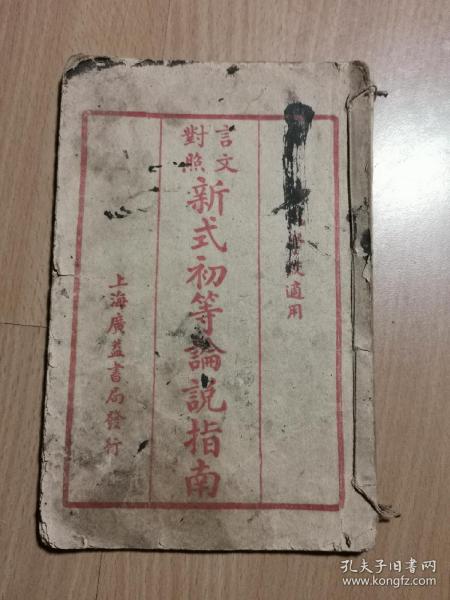 學校適用
言文
對照
新式初等論說指南
上海廣益書局發行
孔夫子旧书网
www.kongfz.com